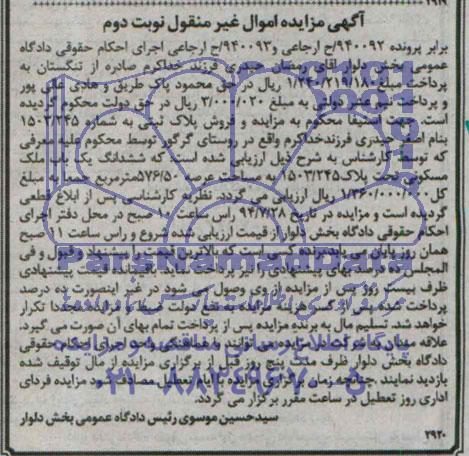 ۱۹۱۹
آگهی مزایده اموال غیر منقول نوبت دوم
برابر پرونده ۹۴۰۰۹۲/ح ارجاعی و۹۴۰۰۹۳/ح ارجاعی اجرای احکام حقوقی دادگاه
عمومی بخش دلوار آقای رمضان حیدری فرزند خداکرم صادره از تنگستان به
پرداخت مبلغ ریال در حق محمود پاک طریق و هادی عالی پور
و پرداخت نیم عشر دولتی به مبلغ ۳/۰۰۰/۰۲۰ ریال در حق دولت محکوم گردیده
است. جهت استیفا محکوم به مزایده و فروش پلاک ثبتی به شماره ۱۵۰۳/۲۴۵
بنام حیدری فرزند خداکرم واقع در روستای گرگور توسط محکوم علیه معرفی
که توسط کارشناس به شرح ذیل ارزیابی شده است که ششدانگ یک باب ملک
مسکونی تحت پلاک ۱۵۰۳/۲۴۵ به مساحت عرصه ۵۷۶/۵۰مترمربع به مبلغ
کل ریال ارزیابی می گردد. نظریه کارشناسی پس از ابلاغ قطعی
گردیده است و مزایده در تاریخ ۹۴/۷/۲۸ راس ساعت ۱۰ صبح در محل دفتر اجرای
احکام حقوقی دادگاه بخش دلوار از قیمت ارزیابی شده شروع و راس ساعت ۱۱ صبح
همان روز پایان می یابد. برنده کسی است که بالاترین قیمت را پیشنهاد و قبول و فی
المجلس ده درصد بهای پیشنهادی را نیز پرداخت نماید. باقیمانده قیمت پیشنهادی
ظرف بیست روز پس از مزایده از وی وصول می شود در غیر اینصورت ده درصد
پرداخت شده پس از کسر هزینه مزایده به نفع دولت ضبط و مزایده مجددا تکرار
خواهد شد. تسلیم مال به برنده مزایده پس از پرداخت تمام بهای آن صورت می گیرد.
علاقه مندان به شرکت در مزایده می توانند با هماقنگی واحد اجرای احکام حقوقی
دادگاه بخش دلوار ظرف مدت پنج روز قبل از برگزاری مزایده از مال توقیف شده
بازدید نمایند. چنانچه زمان برگزاری مزایده با ایام تعطیل مصادف شود مزایده فردای
اداری روز تعطیل در ساعت مقرر برگزار می گردد.
سیدحسین موسوی رئیس دادگاه عمومی بخش دلوار
۲۹۲۰
ParsNamadData
۰۲۱-۸۸۳۴۹۶۷۰-۵